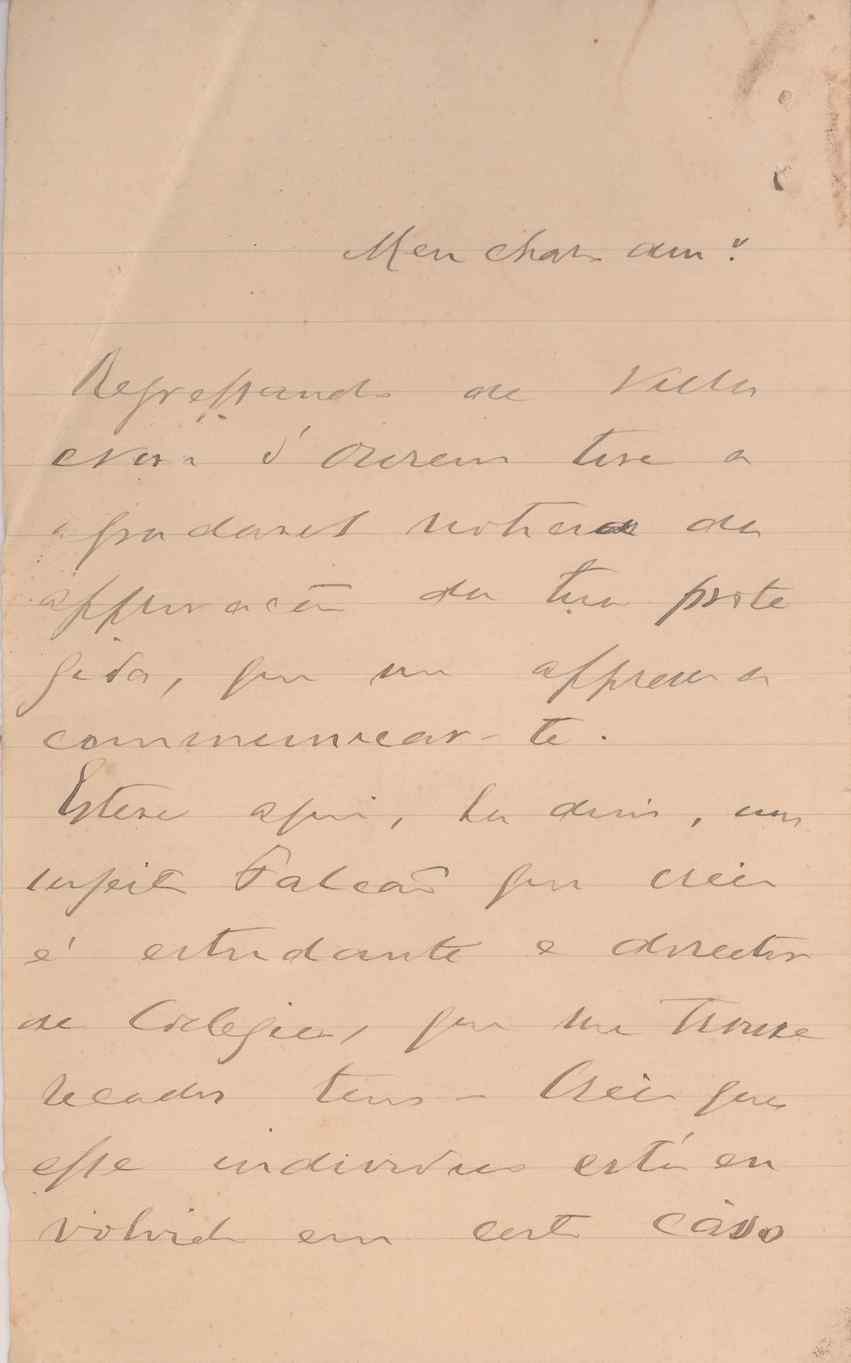 Meu charo am.º
Regressando de Villa
Nova d'Ourem tive a
agradavel noticia da
approvação da tua prote
gida, que me appresso a
communicar-te.
Esteve aqui, ha dias, um
sujeito Falcão que creio
é estudante e director
de Collegio, que me trouxe
recados teus - Creio que
esse individuo está en
volvido em certo caso